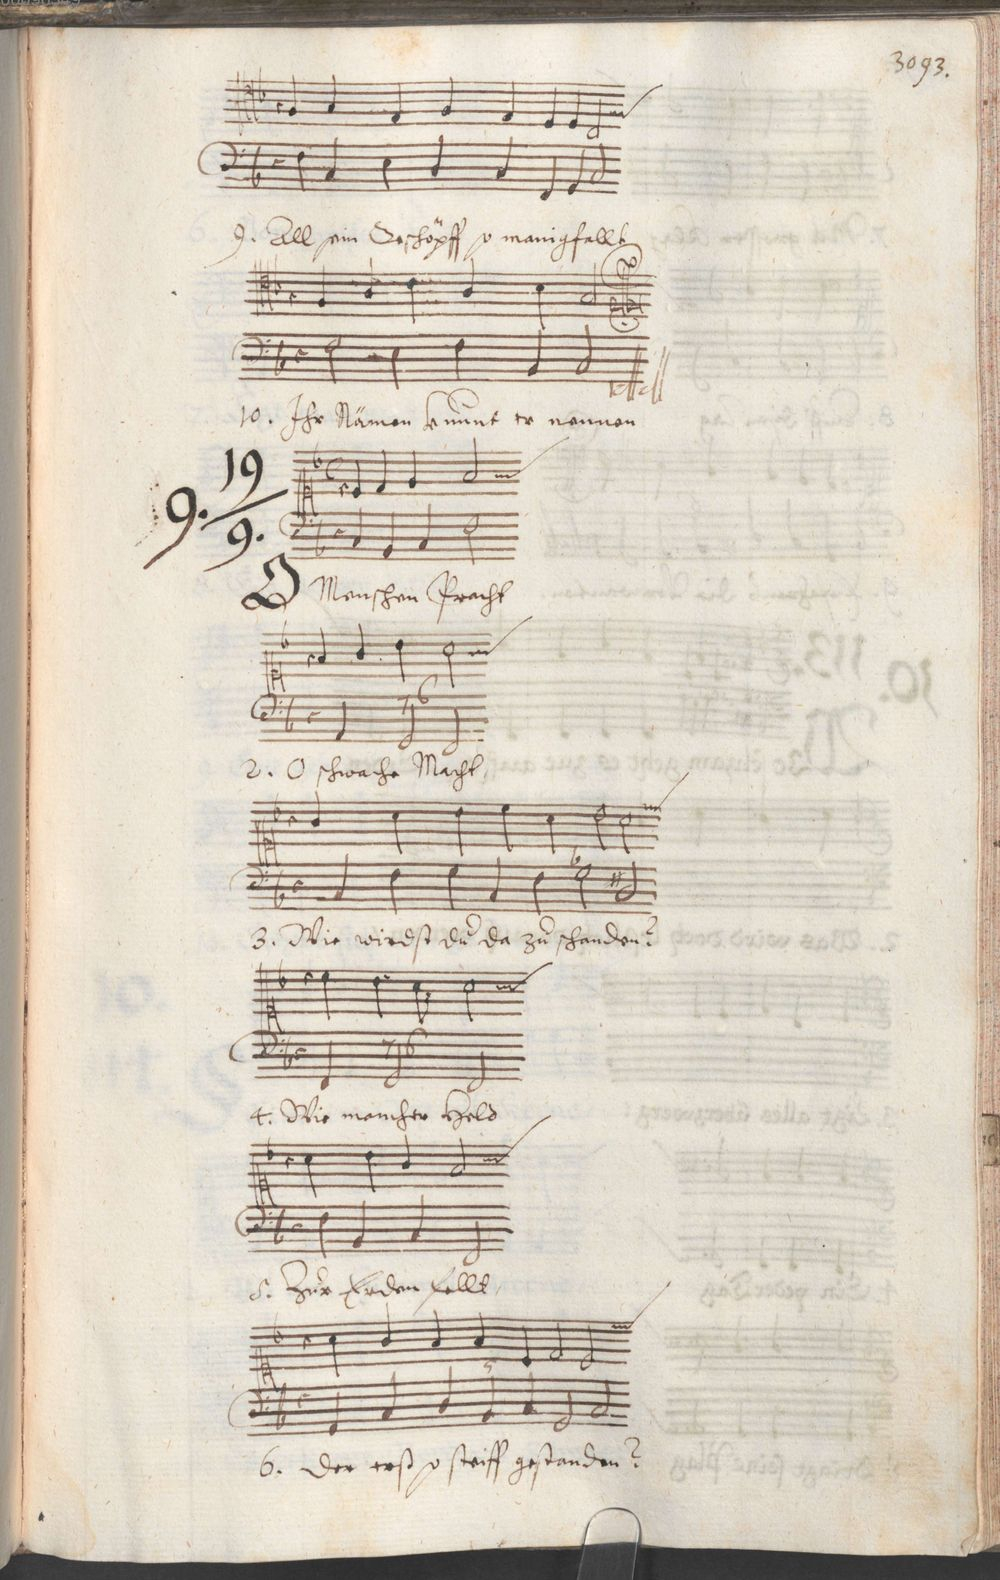 3093.
9. All sein Geschöpff so manigfallt
10. Ihr Nämen kunnt er nennen
9. 19/9.
O Menschen Pracht
2. O schwache Macht,
3. Wie wirdst du da zu schanden?
4. Wie mancher Held
5. Zur Erden fellt,
6. Der erst so steiff gestanden?